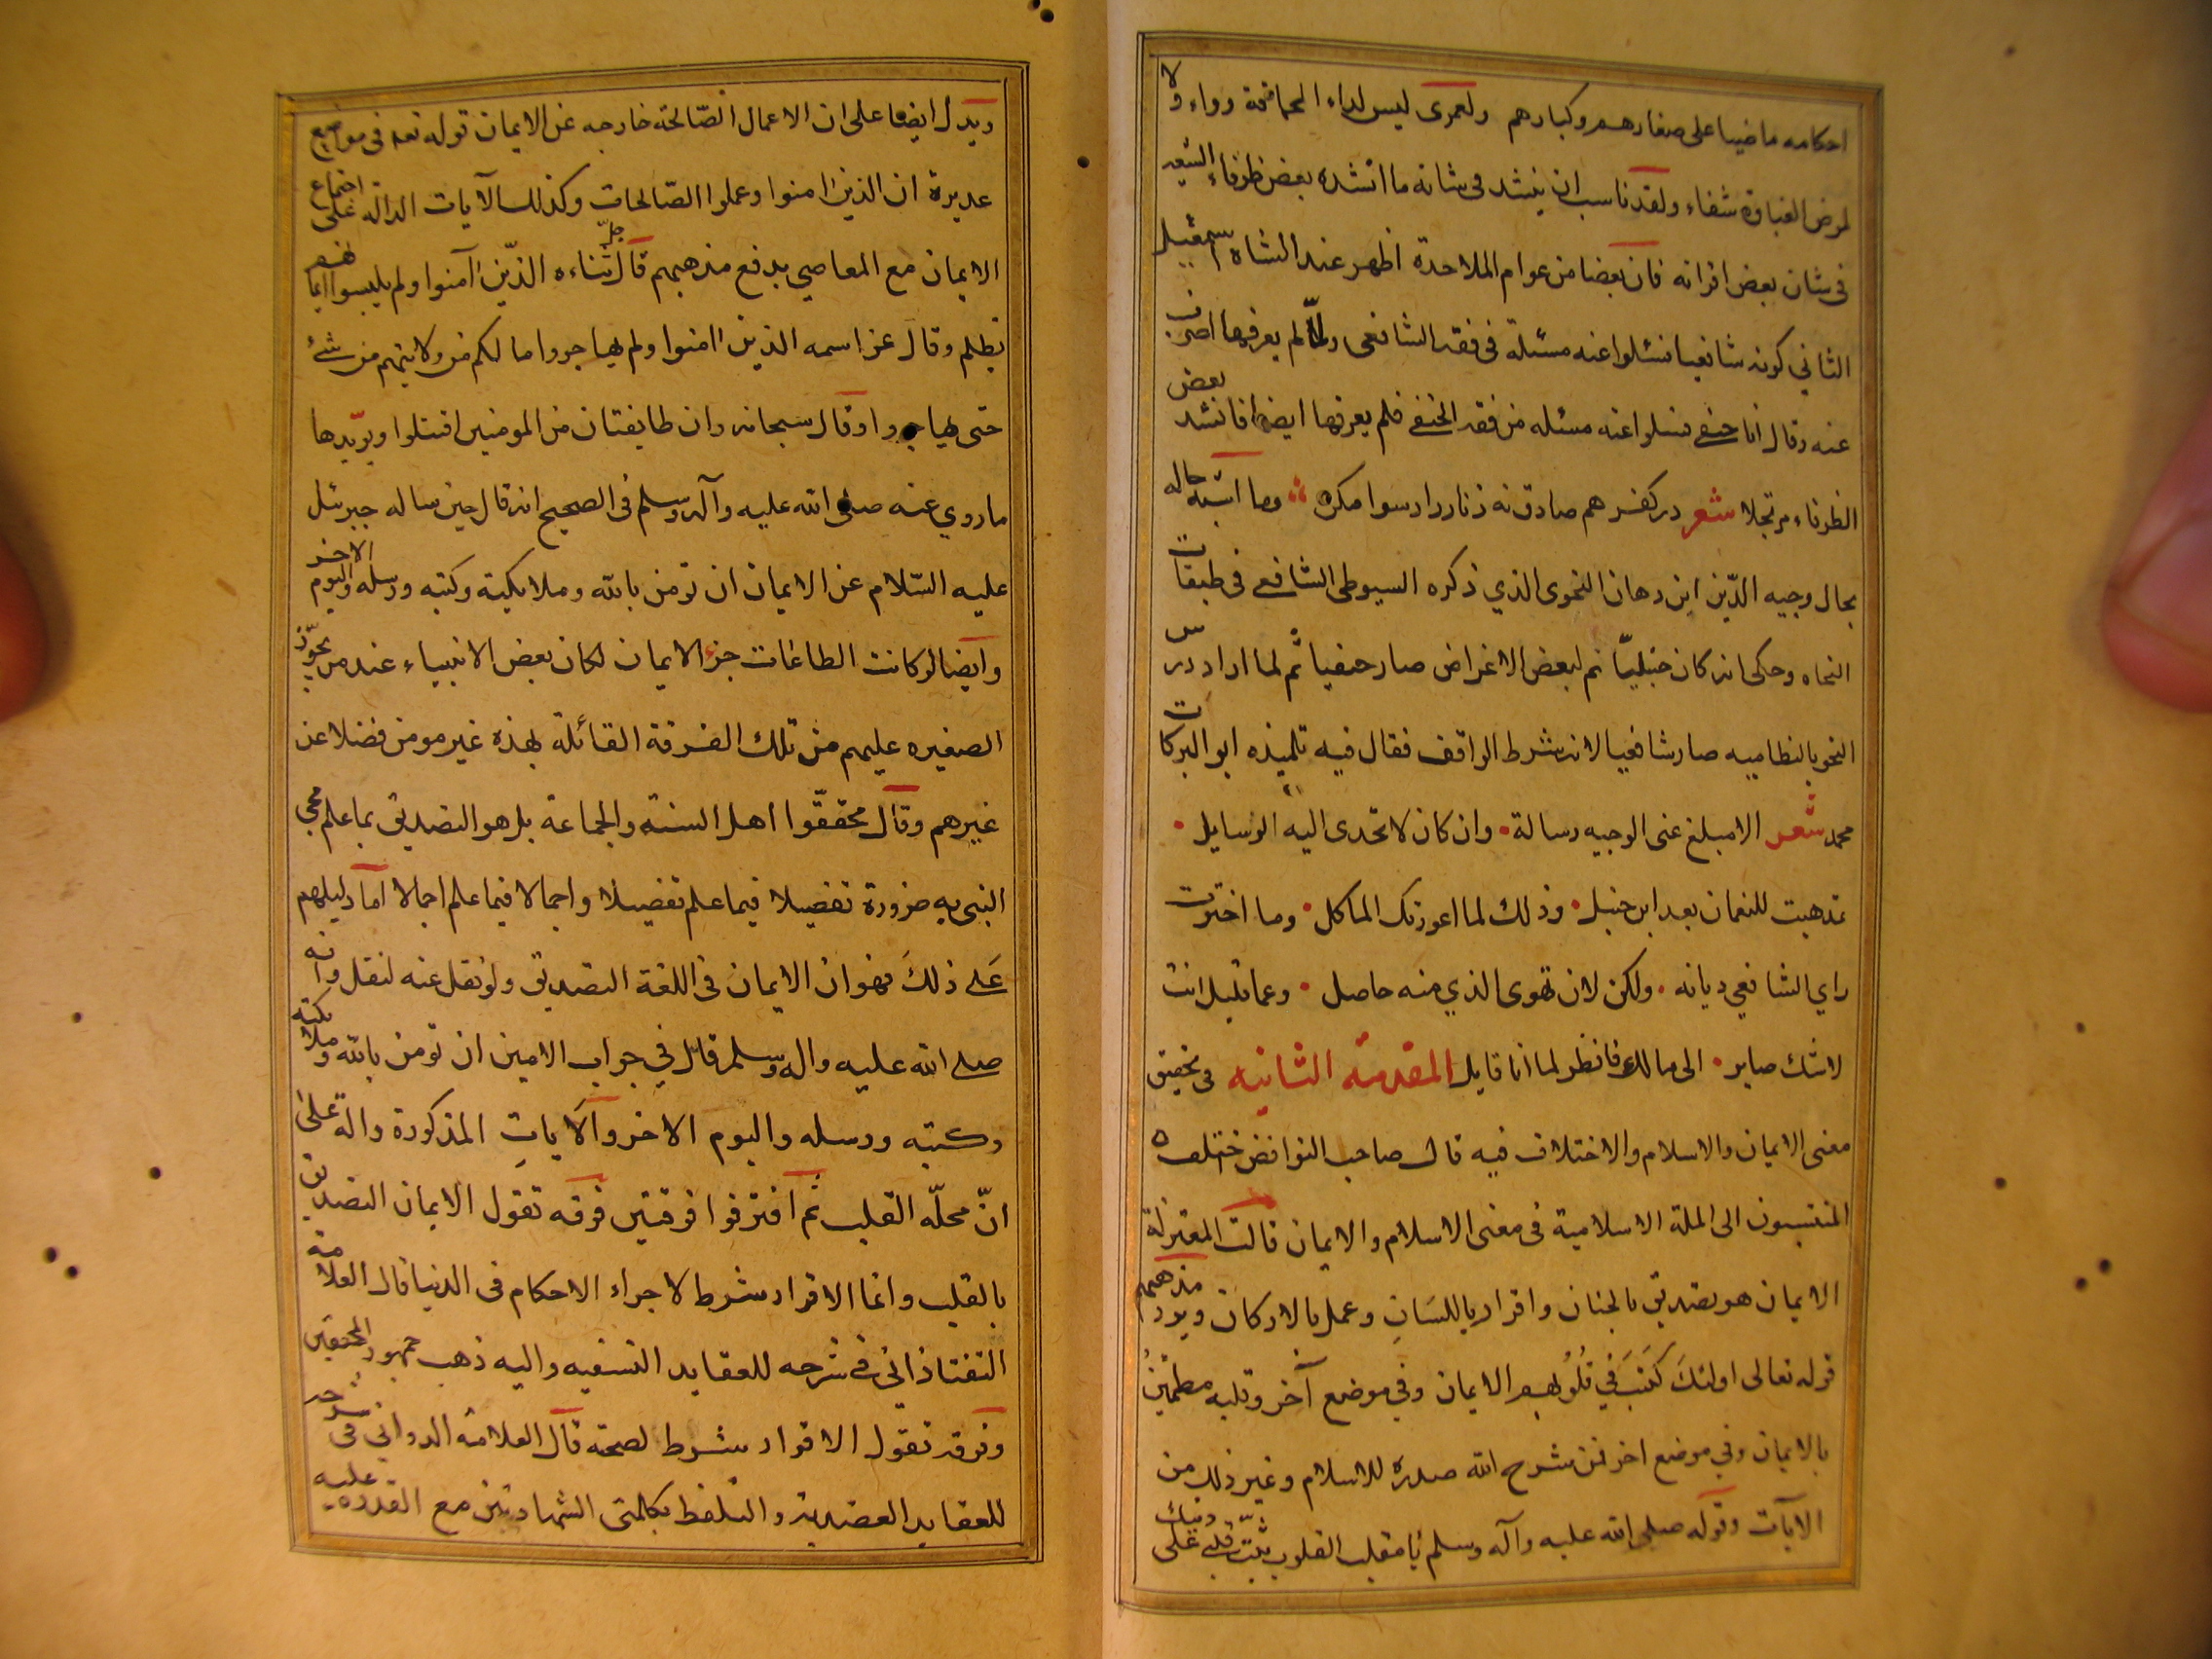 احكامه ماضيا على صغارهم وكبارهم ولعمرى ليس لداء الحماقة دواء ولا
لمرض الغباوة شفاء ولقد ناسب ان ينشد فى شانه ما انشده بعض ظرفاء الشعر
فى شان بعض اقرانه فان بعضا من عوام الملاحدة اظهر عند الشاه اسمعيل
الثاني كونه شافعيا فسئلوا عنه مسئلة فى فقه الشافعى ولمّا لم يعرفها اضرب
عنه وقال انا حنفى فسلوا عنه مسئله من فقه الحنفى فلم يعرفها ايضا فانشد بعض
الظرفاء مرتجلا شعر در كفر هم صادق نه زنار را رسوا مكن وما اشبه حاله
بحال وجيه الدّين ابن دهان النحوى الذي ذكره السيوطى الشافعى فى طبقات
النحاه وحكى انه كان حنبليّا ثم لبعض الاغراض صار حنفيا ثم لما اراد درس
النحو بالنظاميه صار شافعيا لانه شرط الواقف فقال فيه تلميذه ابو البركات
محمد شعر الا مبلغ عنى الوجيه رسالة وان كان لا تجدى اليه الوسايل
تمذهبت للنعمان بعد ابن حنبل وذلك لما اعوزتك الماكل وما اخترت
راي الشافعي ديانه ولكن لان تهوى الذي منه حاصل وعما قليل انت
لا شك صاير الى مالك فانظر لما انا قايل المقدمة الثانيه فى تحقيق
معنى الايمان والاسلام والاختلاف فيه قال صاحب النواقض اختلف
المنتسبون الى الملة الاسلامية فى معنى الاسلام والايمان قالت المعتزلة
الايمان هو تصديق بالجنان واقرار باللسان وعمل بالاركان ويرد مذهبهم
قوله تعالى اولئك كَتَبَ في قُلُوبهم الايمان وفي موضع آخر وقلبه مطمئنٌ
بالايمان وفي موضع اخر فمن شرح الله صدره للاسلام وغير ذلك من
الآيات وقوله صلى الله عليه وآله وسلم يا مقلب القلوب ثبّت قلبى على دينك
ويدل ايضا على ان الاعمال الصّالحة خارجه عن الايمان قوله تعه فى مواضع
عديدة ان الذين امنوا وعملوا الصّالحات وكذلك الآيات الدالة على اجتماع
الايمان مع المعاصي يدفع مذهبهم قال جلّ ثناءه الذّين آمنوا ولم يلبسوا ايمانهم
بظلم وقال عز اسمه الذين امنوا ولم يهاجروا ما لكم من ولايتهم من شئ
حتى يهاجروا وقال سبحانه وان طايفتان من المومنين اقتتلوا ويويّدها
ما روي عنه صلى الله عليه وآله وسلم فى الصحيح انه قال حين ساله جبرئيل
عليه السّلام عن الايمان ان تومن بالله وملايكته وكتبه ورسله واليوم الاخر
وايضا لو كانت الطاعات جزء الايمان لكان بعض الانبياء عند من يجوّز
الصغيره عليهم من تلك الفرقة القائلة بهذه غير مومن فضلا عن
غيرهم وقال محققّوا اهل السنة والجماعة بل هو التصديق بما علم مجى
النبى به ضرورة تفصيلا فيما علم تفصيلا واجمالا فيما علم اجمالا اما دليلهم
عَلى ذلكَ فهو ان الايمان فى اللغة التصديق ولو نقل عنه لنقل وانه
صلى الله عليه واله وسلم قال في جواب الامين ان تومن بالله وملايكته
وكتبه ورسله واليوم الاخر والآيات المذكورة دالة على
انّ محلّه القلب ثم افترقوا فرقتين فرقه تقول الايمان التصديق
بالقلب وانما الاقرار شرط لاجراء الاحكام فى الدنيا قال العلامة
التفتازاني في شرحه للعقايد النسفيه واليه ذهب جمهور المحققين
وفرقه تقول الاقرار شرط لصحته قال العلامه الدواني فى شرحه
للعقايد العضديه والتلفظ بكلمتى الشهادتين مع القدره عليه